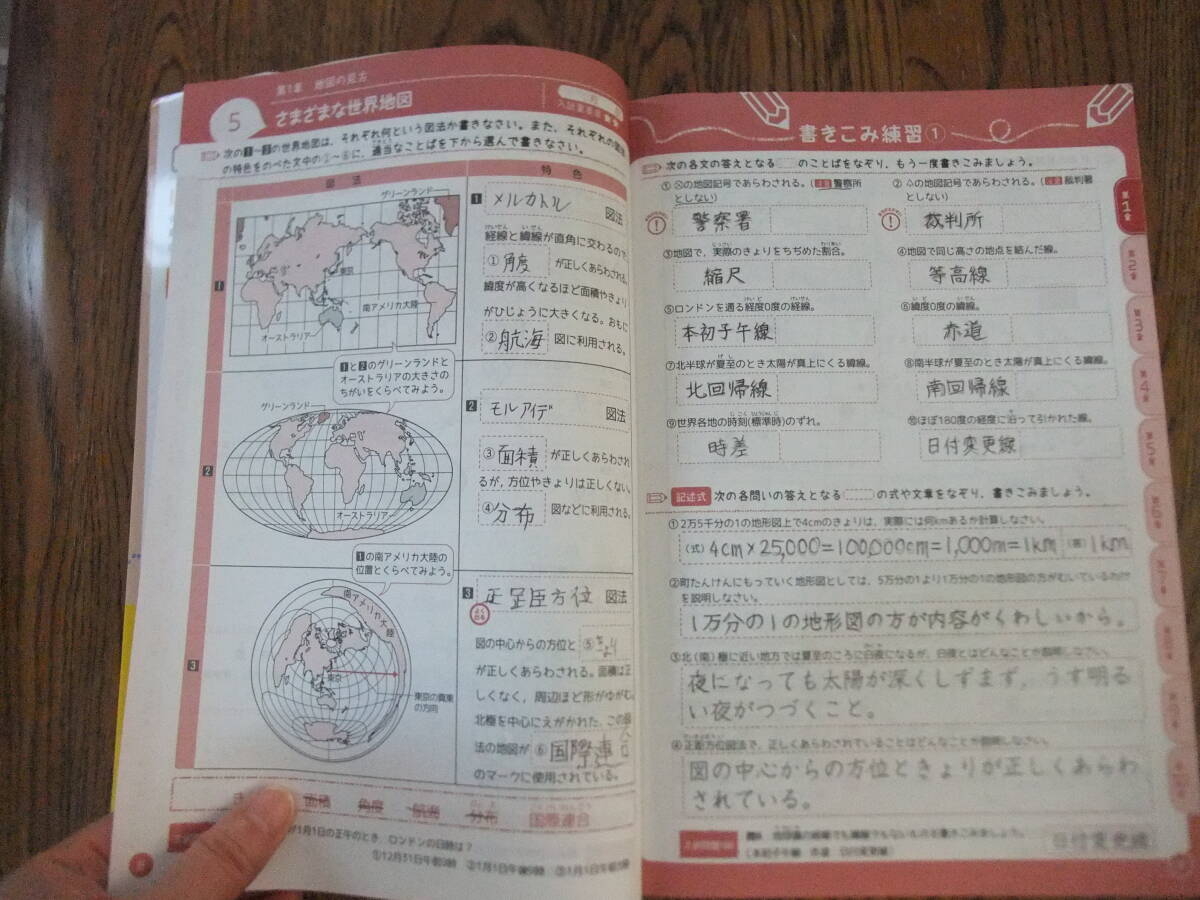 第1章 地図の見方
5 さまざまな世界地図
入試重要度
次の1~3の世界地図は、それぞれ何という図法か書きなさい。また、それぞれの図法
の特色をのべた文中の①~⑥に、適当なことばを下から選んで書きなさい。
図法
特色
1
グリーンランド
東京
南アメリカ大陸
オーストラリア
1と2のグリーンランドと
オーストラリアの大きさの
ちがいをくらべてみよう。
2
グリーンランド
オーストラリア
1の南アメリカ大陸の
位置とくらべてみよう。
3
南アメリカ大陸
東京
東京の真東
の方向
1 メルカトル 図法
経線と緯線が直角に交わるので、
① 角度 が正しくあらわされる。
緯度が高くなるほど面積やきょり
がひじょうに大きくなる。おもに
② 航海 図に利用される。
2 モルワイデ 図法
③ 面積 が正しくあらわされ
るが、方位やきょりは正しくない。
④ 分布 図などに利用される。
3 正距方位 図法
図の中心からの方位と ⑤ きょり
が正しくあらわされる。面積は正
しくなく、周辺ほど形がゆがむ。
北極を中心にえがかれた、この図
法の地図が ⑥ 国際連合
のマークに使用されている。
面積 角度 航海 分布 国際連合
1月1日の正午のとき、ロンドンの日時は?
①12月31日午前3時 ②1月1日午後9時 ③1月1日午前3時
書きこみ練習①
次の各文の答えとなる のことばをなぞり、もう一度書きこみましょう。
① ⊗の地図記号であらわされる。(注意 警察所
としない)
警察署
② の地図記号であらわされる。(注意 裁判署
としない)
裁判所
③地図で、実際のきょりをちぢめた割合。
縮尺
④地図で同じ高さの地点を結んだ線。
等高線
⑤ロンドンを通る経度0度の経線。
本初子午線
⑥緯度0度の緯線。
赤道
⑦北半球が夏至のとき太陽が真上にくる緯線。
北回帰線
⑧南半球が夏至のとき太陽が真上にくる緯線。
南回帰線
⑨世界各地の時刻(標準時)のずれ。
時差
⑩ほぼ180度の経度に沿って引かれた線。
日付変更線
記述式 次の各問いの答えとなる の式や文章をなぞり、書きこみましょう。
①2万5千分の1の地形図上で4cmのきょりは、実際には何kmあるか計算しなさい。
(式) 4cm×25,000=100,000cm=1,000m=1km (答) 1km
②町たんけんにもっていく地形図としては、5万分の1より1万分の1の地形図の方がむいているわけ
を説明しなさい。
1万分の1の地形図の方が内容がくわしいから。
③北(南)極に近い地方では夏至のころに白夜になるが、白夜とはどんなことか説明しなさい。
夜になっても太陽が深くしずまず、うす明る
い夜がつづくこと。
④正距方位図法で、正しくあらわされていることはどんなことか説明しなさい。
図の中心からの方位ときょりが正しくあらわ
されている。
(本初子午線 赤道 日付変更線)
日付変更線
第1章
第2章
第3章
第4章
第5章
第6章
第7章